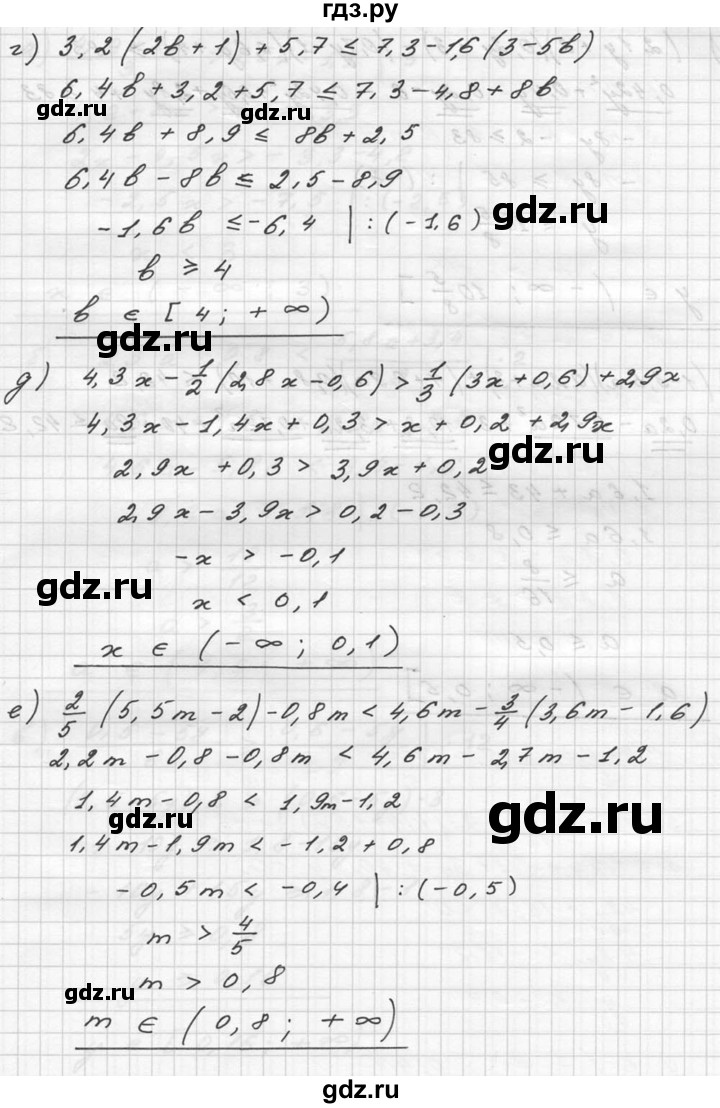 гдз.ру
г) 3,2(2b+1)+5,7 ≤ 7,3-1,6(3-5b)
6,4b+3,2+5,7 ≤ 7,3-4,8+8b
gdz.ru gdz.ru
6,4b+8,9 ≤ 8b+2,5
6,4b-8b ≤ 2,5-8,9
gdz.ru
-1,6b ≤ -6,4 | :(-1,6)
b ≥ 4
b ∈ [4; +∞)
gdz.ru
д) 4,3x-1/2(2,8x-0,6) > 1/3(3x+0,6)+2,9x
4,3x-1,4x+0,3 > x+0,2+2,9x
gdz.ru
2,9x+0,3 > 3,9x+0,2
2,9x-3,9x > 0,2-0,3
-x > -0,1
gdz.ru
x < 0,1
x ∈ (-∞; 0,1)
е) 2/5(5,5m-2)-0,8m < 4,6m-3/4(3,6m-1,6)
2,2m-0,8-0,8m < 4,6m-2,7m-1,2
1,4m-0,8 < 1,9m-1,2
gdz.ru gdz.ru
1,4m-1,9m < -1,2+0,8
-0,5m < -0,4 | :(-0,5)
m > 4/5
m > 0,8
gdz.ru gdz.ru
m ∈ (0,8; +∞)
gdz.ru